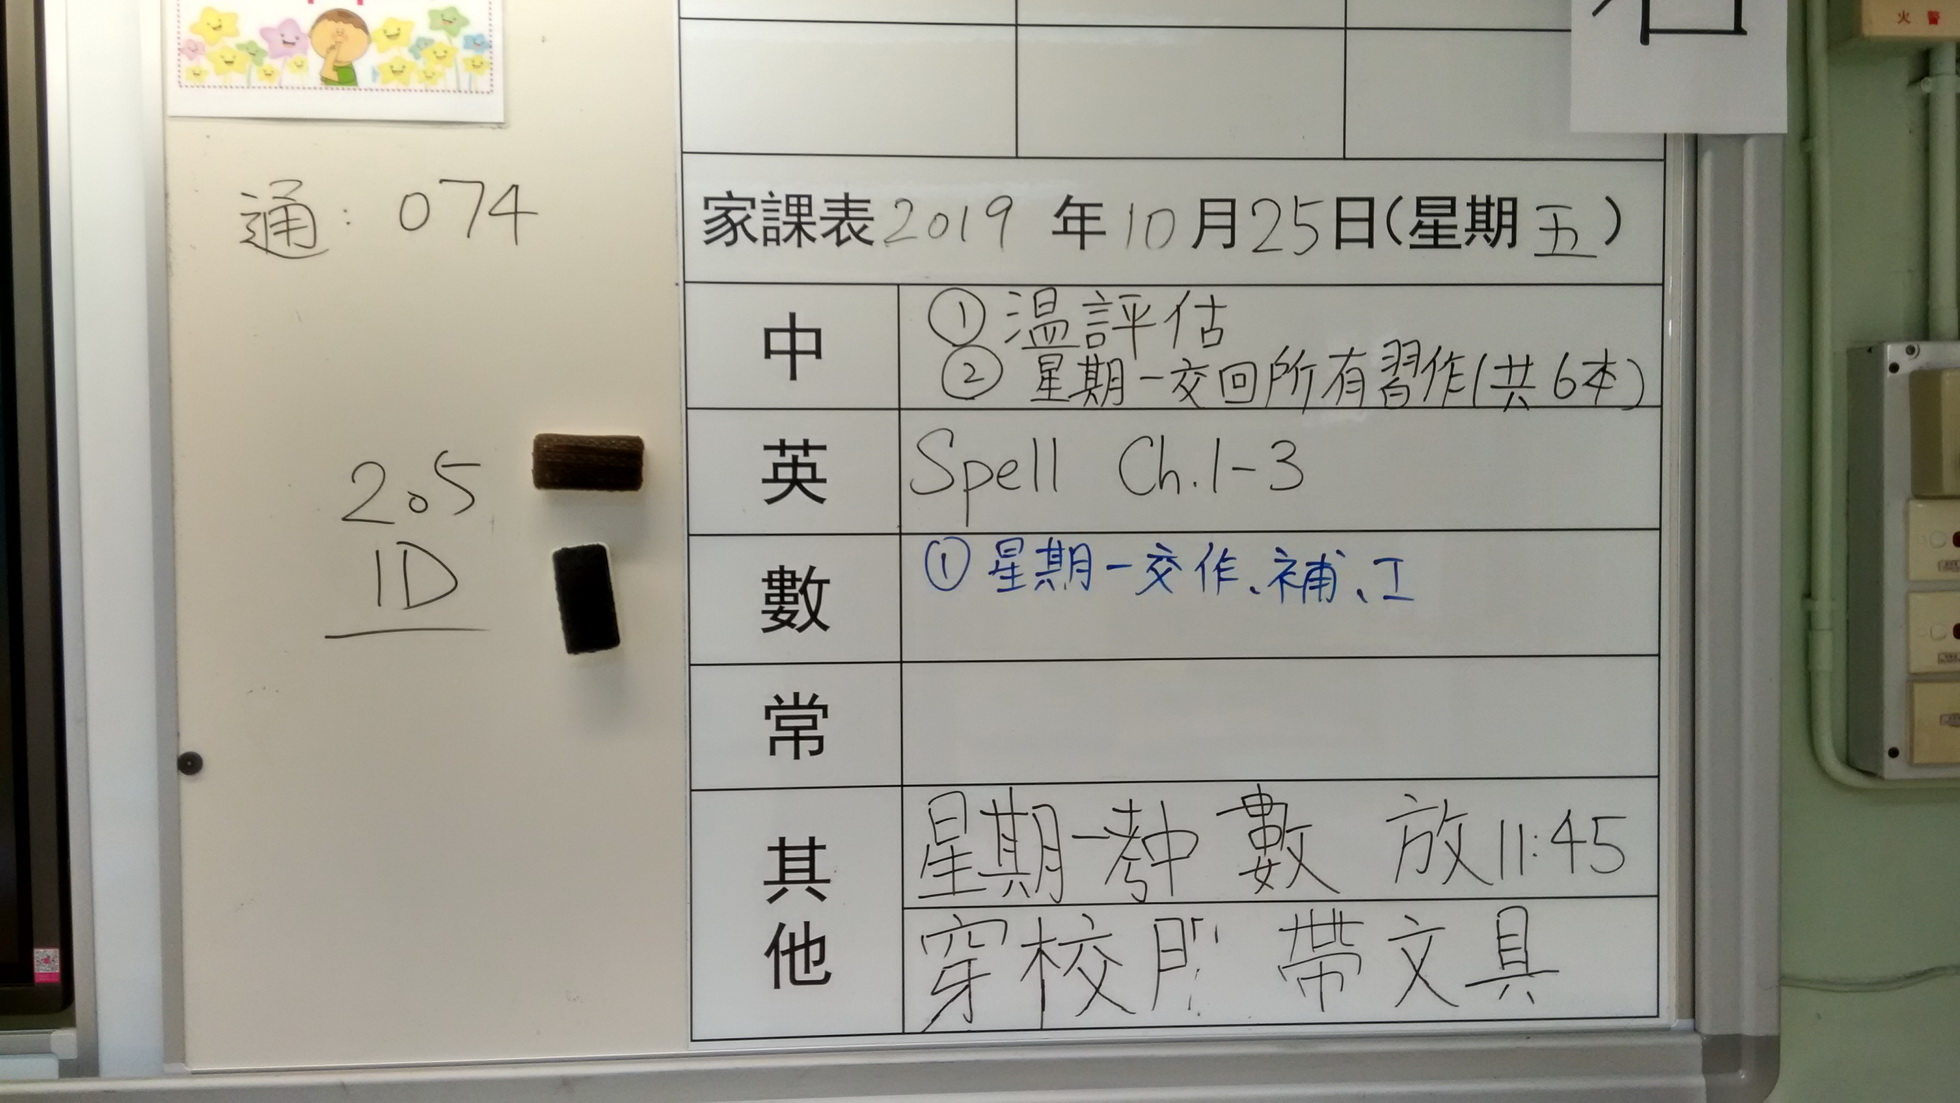 通：074
2.5
1D
火警
家課表2019年10月25日(星期五)
中
①溫評估
②星期一交回所有習作(共6本)
英
Spell Ch.1-3
數
①星期一交作、補、工
常
其他
星期一考中數 放11:45
穿校 帶文具